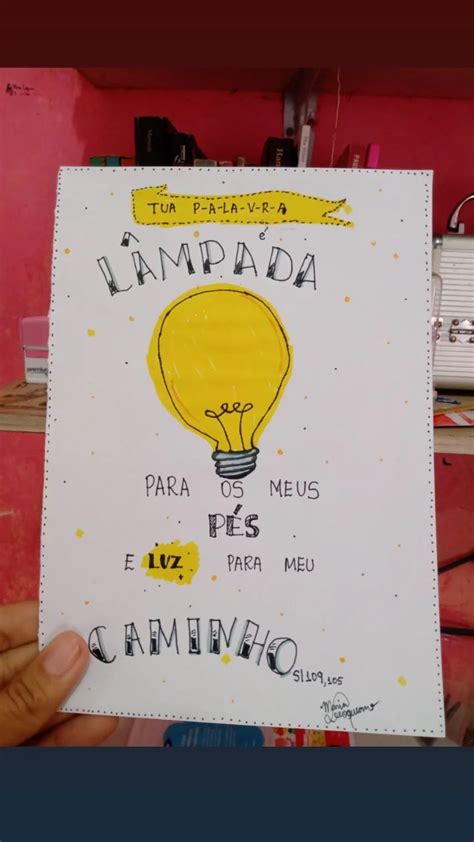 TUA P-A-LA-V-R-A
é
LÂMPADA
PARA OS MEUS
PÉS
E LUZ PARA MEU
CAMINHO
Sl 109, 105
Maria